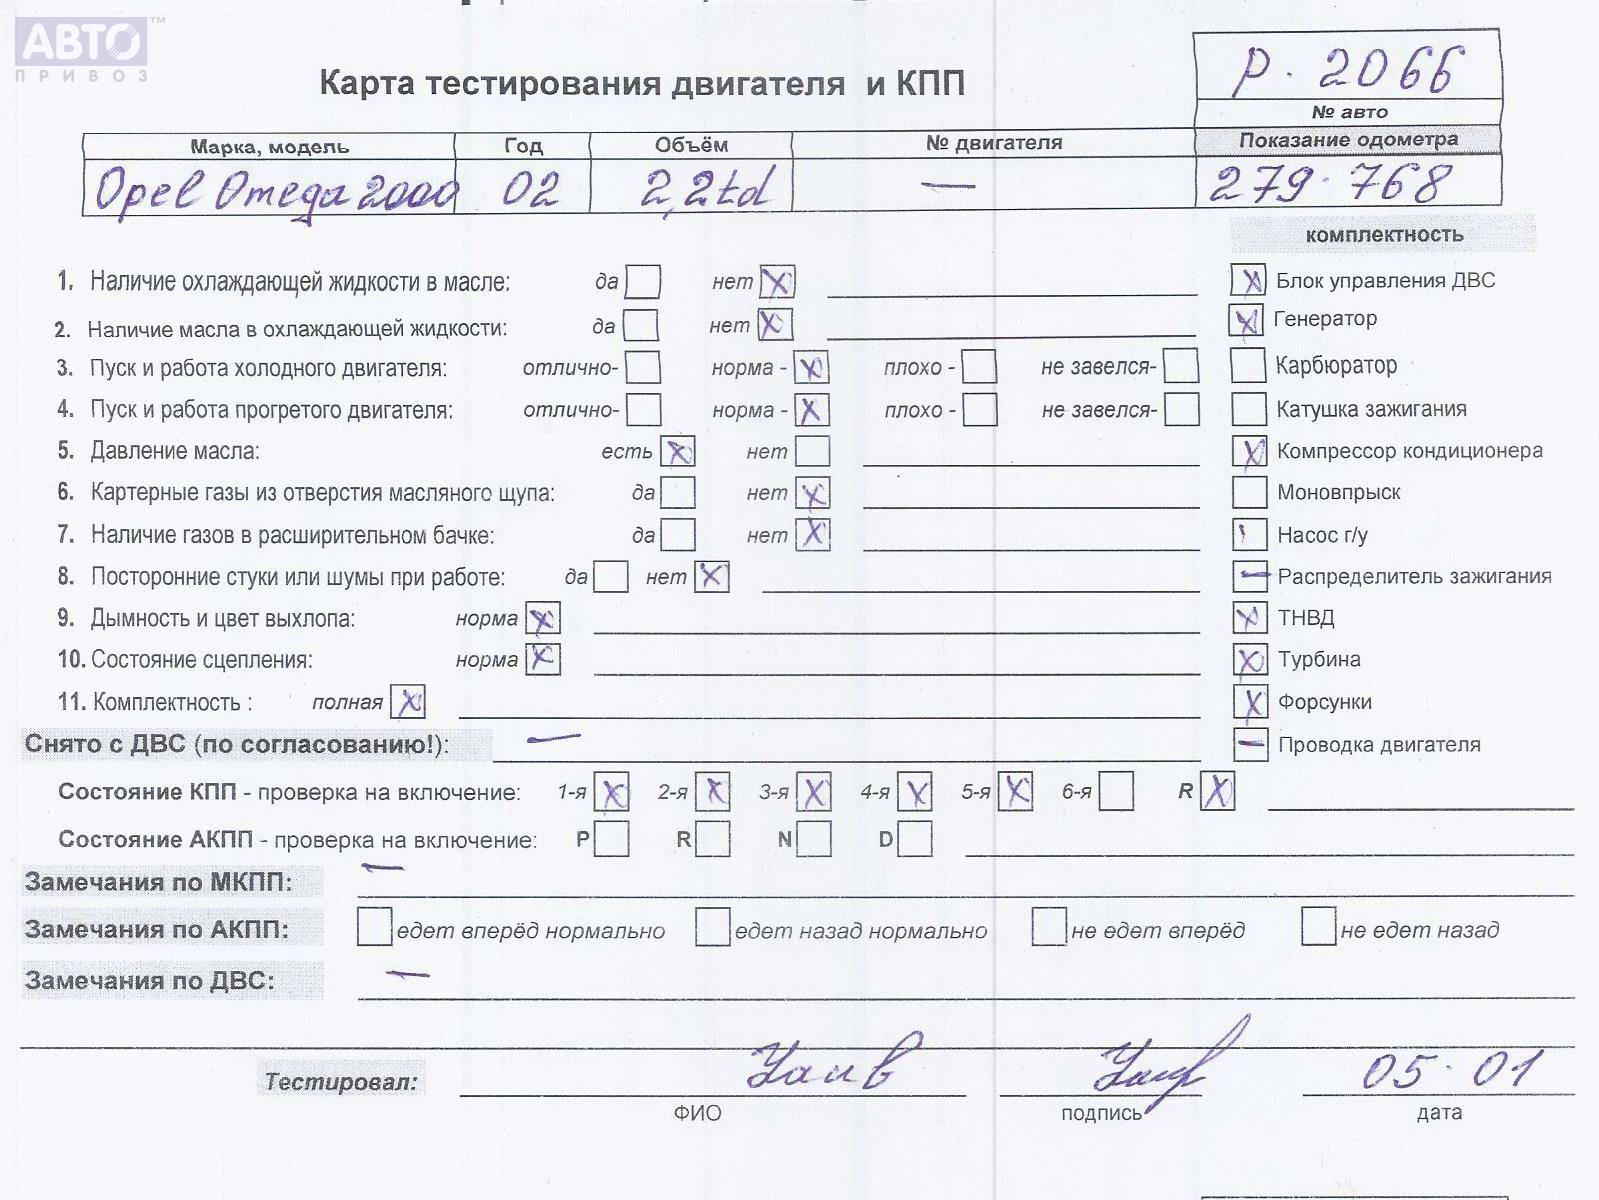 АВТО™
ПРИВОЗ
Карта тестирования двигателя и КПП
P. 2066
№ авто
Марка, модель Год Объём № двигателя Показание одометра
Opel Omega 2000 02 2,2td — 279.768
комплектность
1. Наличие охлаждающей жидкости в масле: да нет X
Блок управления ДВС X
2. Наличие масла в охлаждающей жидкости: да нет X
Генератор X
3. Пуск и работа холодного двигателя: отлично- норма - X плохо - не завелся-
Карбюратор
4. Пуск и работа прогретого двигателя: отлично- норма - X плохо - не завелся-
Катушка зажигания
5. Давление масла: есть X нет
X Компрессор кондиционера
6. Картерные газы из отверстия масляного щупа: да нет X
Моновпрыск
7. Наличие газов в расширительном бачке: да нет X
Насос г/у
8. Посторонние стуки или шумы при работе: да нет X
— Распределитель зажигания
9. Дымность и цвет выхлопа: норма X
X ТНВД
10. Состояние сцепления: норма X
X Турбина
11. Комплектность : полная X
X Форсунки
Снято с ДВС (по согласованию!): —
— Проводка двигателя
Состояние КПП - проверка на включение: 1-я X 2-я X 3-я X 4-я X 5-я X 6-я R X
Состояние АКПП - проверка на включение: P R N D
Замечания по МКПП: —
Замечания по АКПП: едет вперёд нормально едет назад нормально не едет вперёд не едет назад
Замечания по ДВС: —
Тестировал: 05.01
ФИО подпись дата